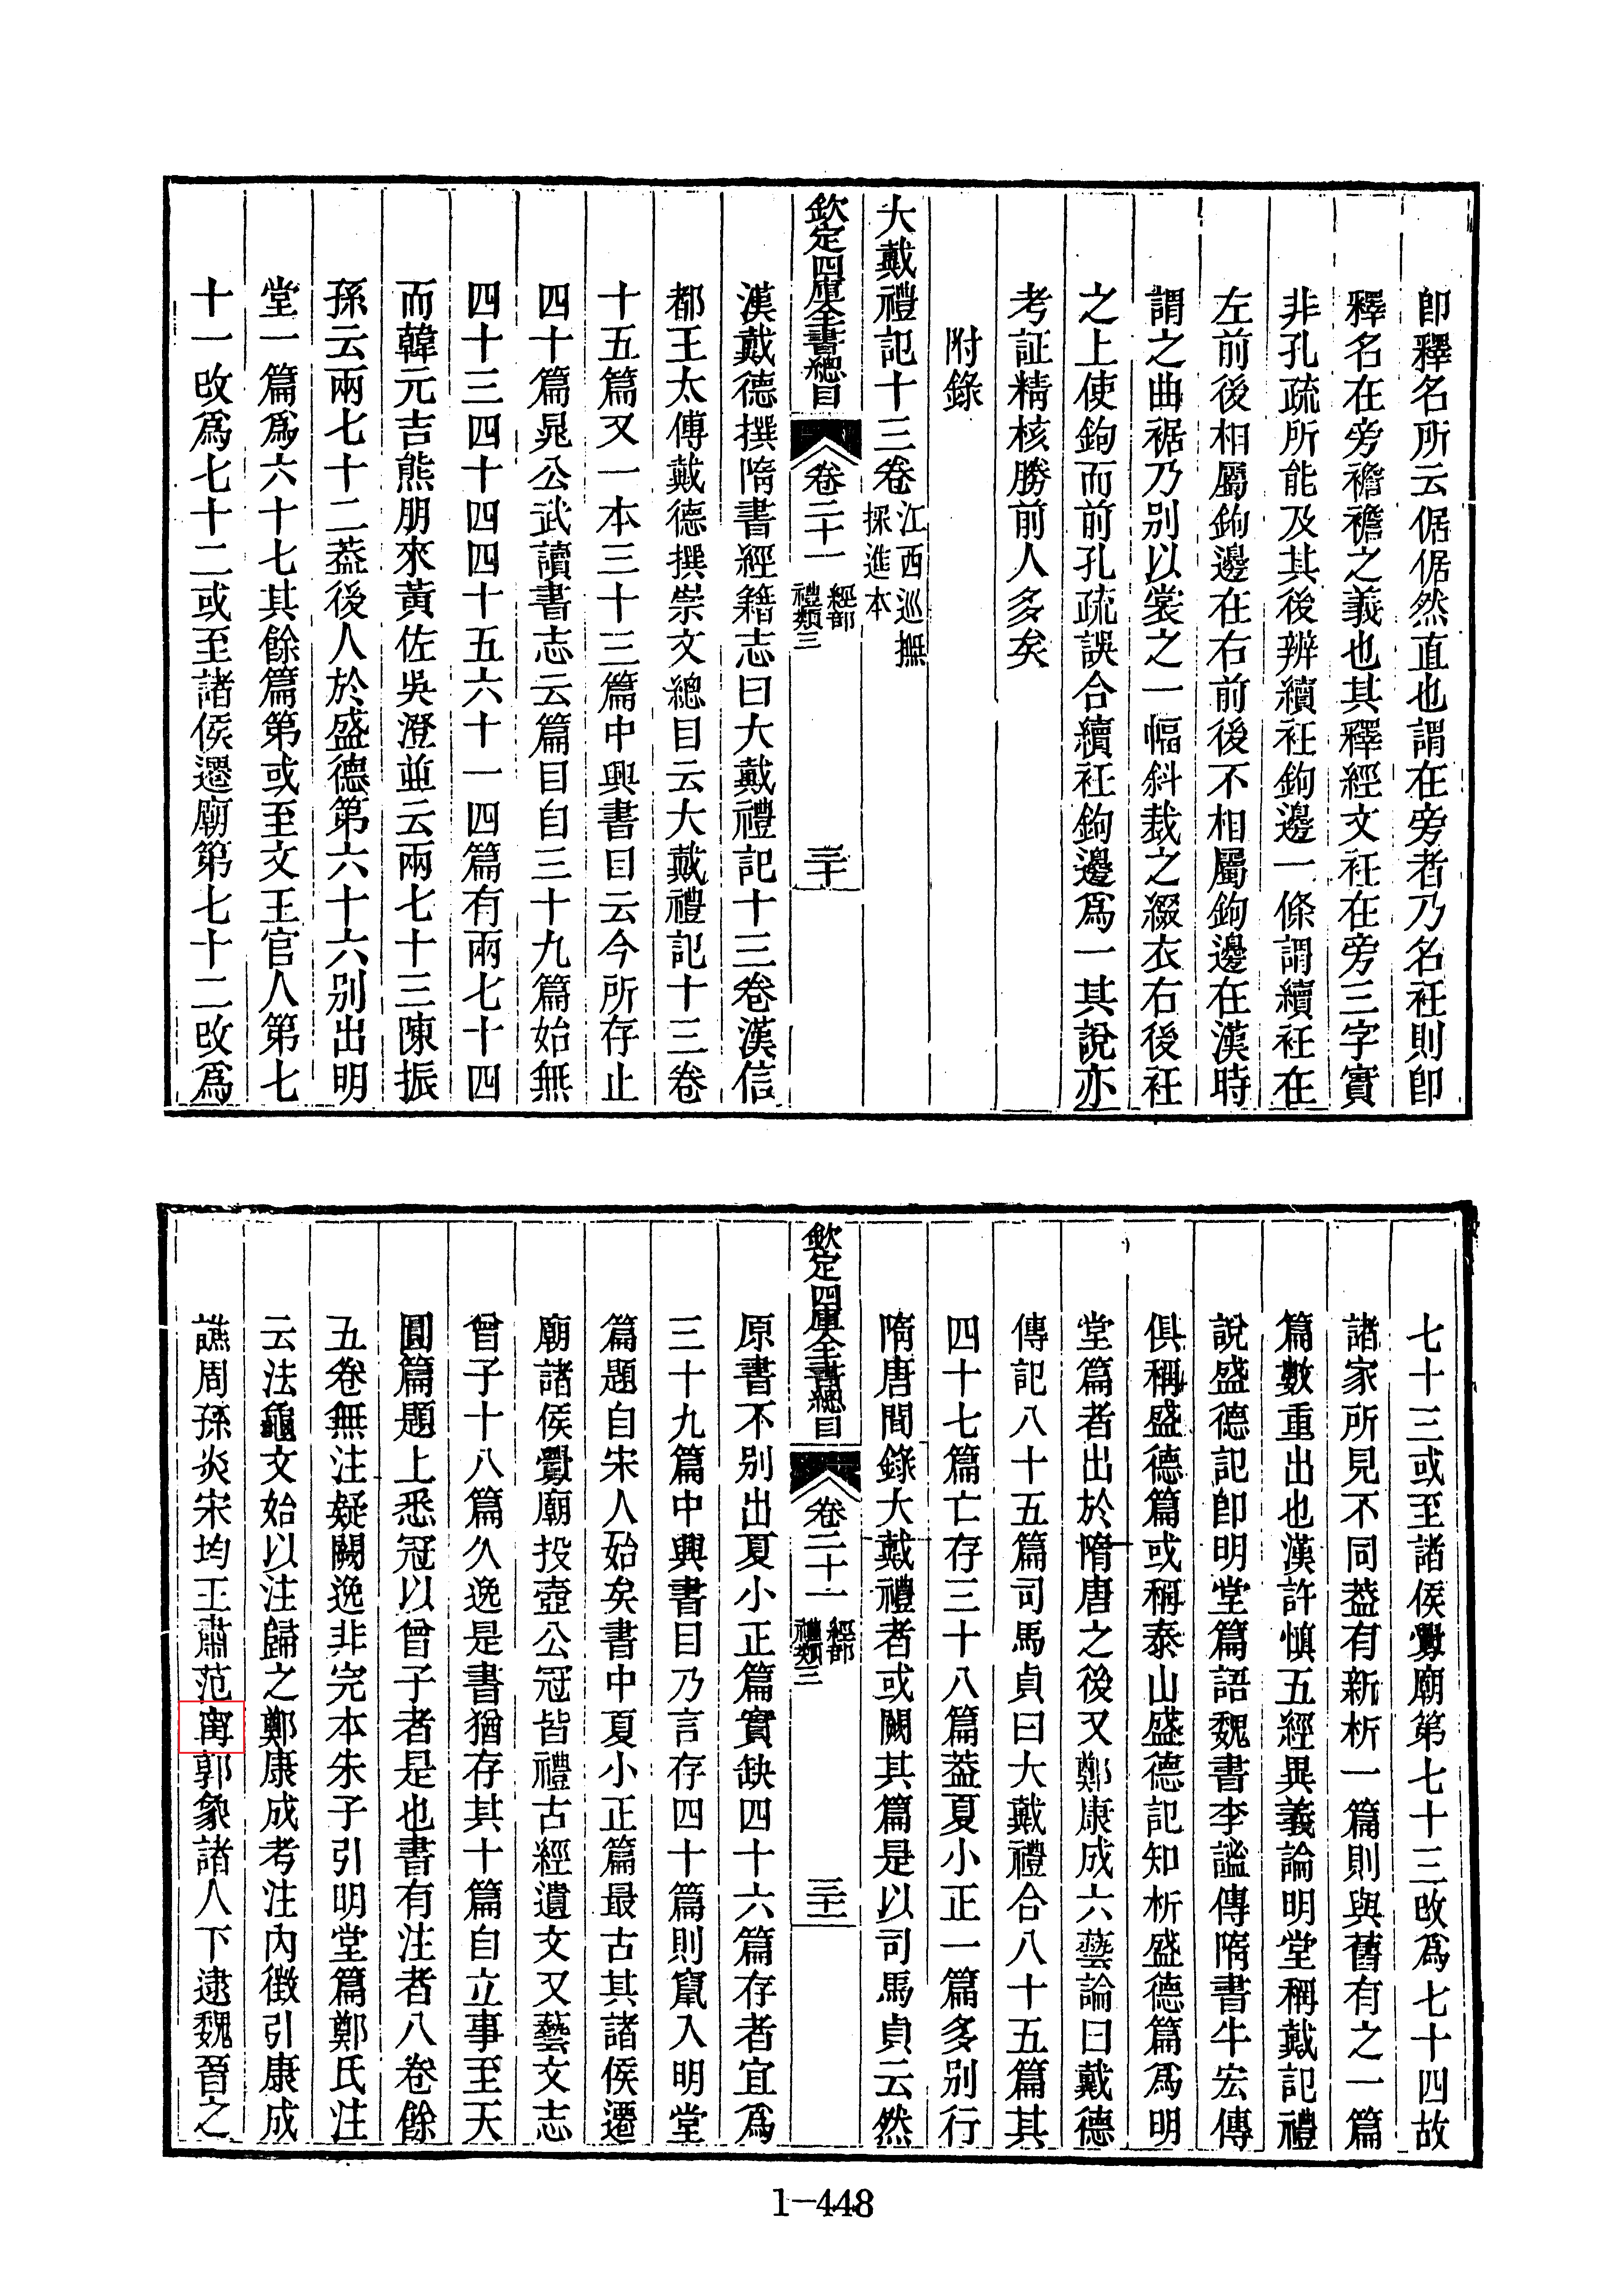 卽釋名所云倨倨然直也謂在旁者乃名衽則卽
釋名在旁襜襜之義也其釋經文衽在旁三字實
非孔疏所能及其後辨續衽鉤邊一條謂續衽在
左前後相屬鉤邊在右前後不相屬鉤邊在漢時
謂之曲裾乃别以裳之一幅斜裁之綴衣右後衽
之上使鉤而前孔疏誤合續衽鉤邊爲一其說亦
考証精核勝前人多矣
附錄
大戴禮記十三卷江西巡撫採進本
欽定四庫全書總目 卷二十一 經部 禮類三 三十
漢戴德撰隋書經籍志曰大戴禮記十三卷漢信
都王太傅戴德撰崇文總目云大戴禮記十三卷
十五篇又一本三十三篇中興書目云今所存止
四十篇晁公武讀書志云篇目自三十九篇始無
四十三四十四四十五六十一四篇有兩七十四
而韓元吉熊朋來黃佐吳澄並云兩七十三陳振
孫云兩七十二葢後人於盛德第六十六别出明
堂一篇爲六十七其餘篇第或至文王官人第七
十一改爲七十二或至諸侯遷廟第七十二改爲
七十三或至諸侯釁廟第七十三改爲七十四故
諸家所見不同葢有新析一篇則與舊有之一篇
篇數重出也漢許慎五經異義論明堂稱戴記禮
說盛德記卽明堂篇語魏書李謐傳隋書牛宏傳
俱稱盛德篇或稱泰山盛德記知析盛德篇爲明
堂篇者出於隋唐之後又鄭康成六藝論曰戴德
傳記八十五篇司馬貞曰大戴禮合八十五篇其
四十七篇亡存三十八篇葢夏小正一篇多别行
隋唐間錄大戴禮者或闕其篇是以司馬貞云然
欽定四庫全書總目 卷二十一 經部 禮類三 三十一
原書不别出夏小正篇實缺四十六篇存者宜爲
三十九篇中興書目乃言存四十篇則竄入明堂
篇題自宋人始矣書中夏小正篇最古其諸侯遷
廟諸侯釁廟投壺公冠皆禮古經遺文又藝文志
曾子十八篇久逸是書猶存其十篇自立事至天
圓篇題上悉冠以曾子者是也書有注者八卷餘
五卷無注疑闕逸非完本朱子引明堂篇鄭氏注
云法龜文始以注歸之鄭康成考注內徴引康成
譙周孫炎宋均王肅范甯郭象諸人下逮魏晉之
1-448